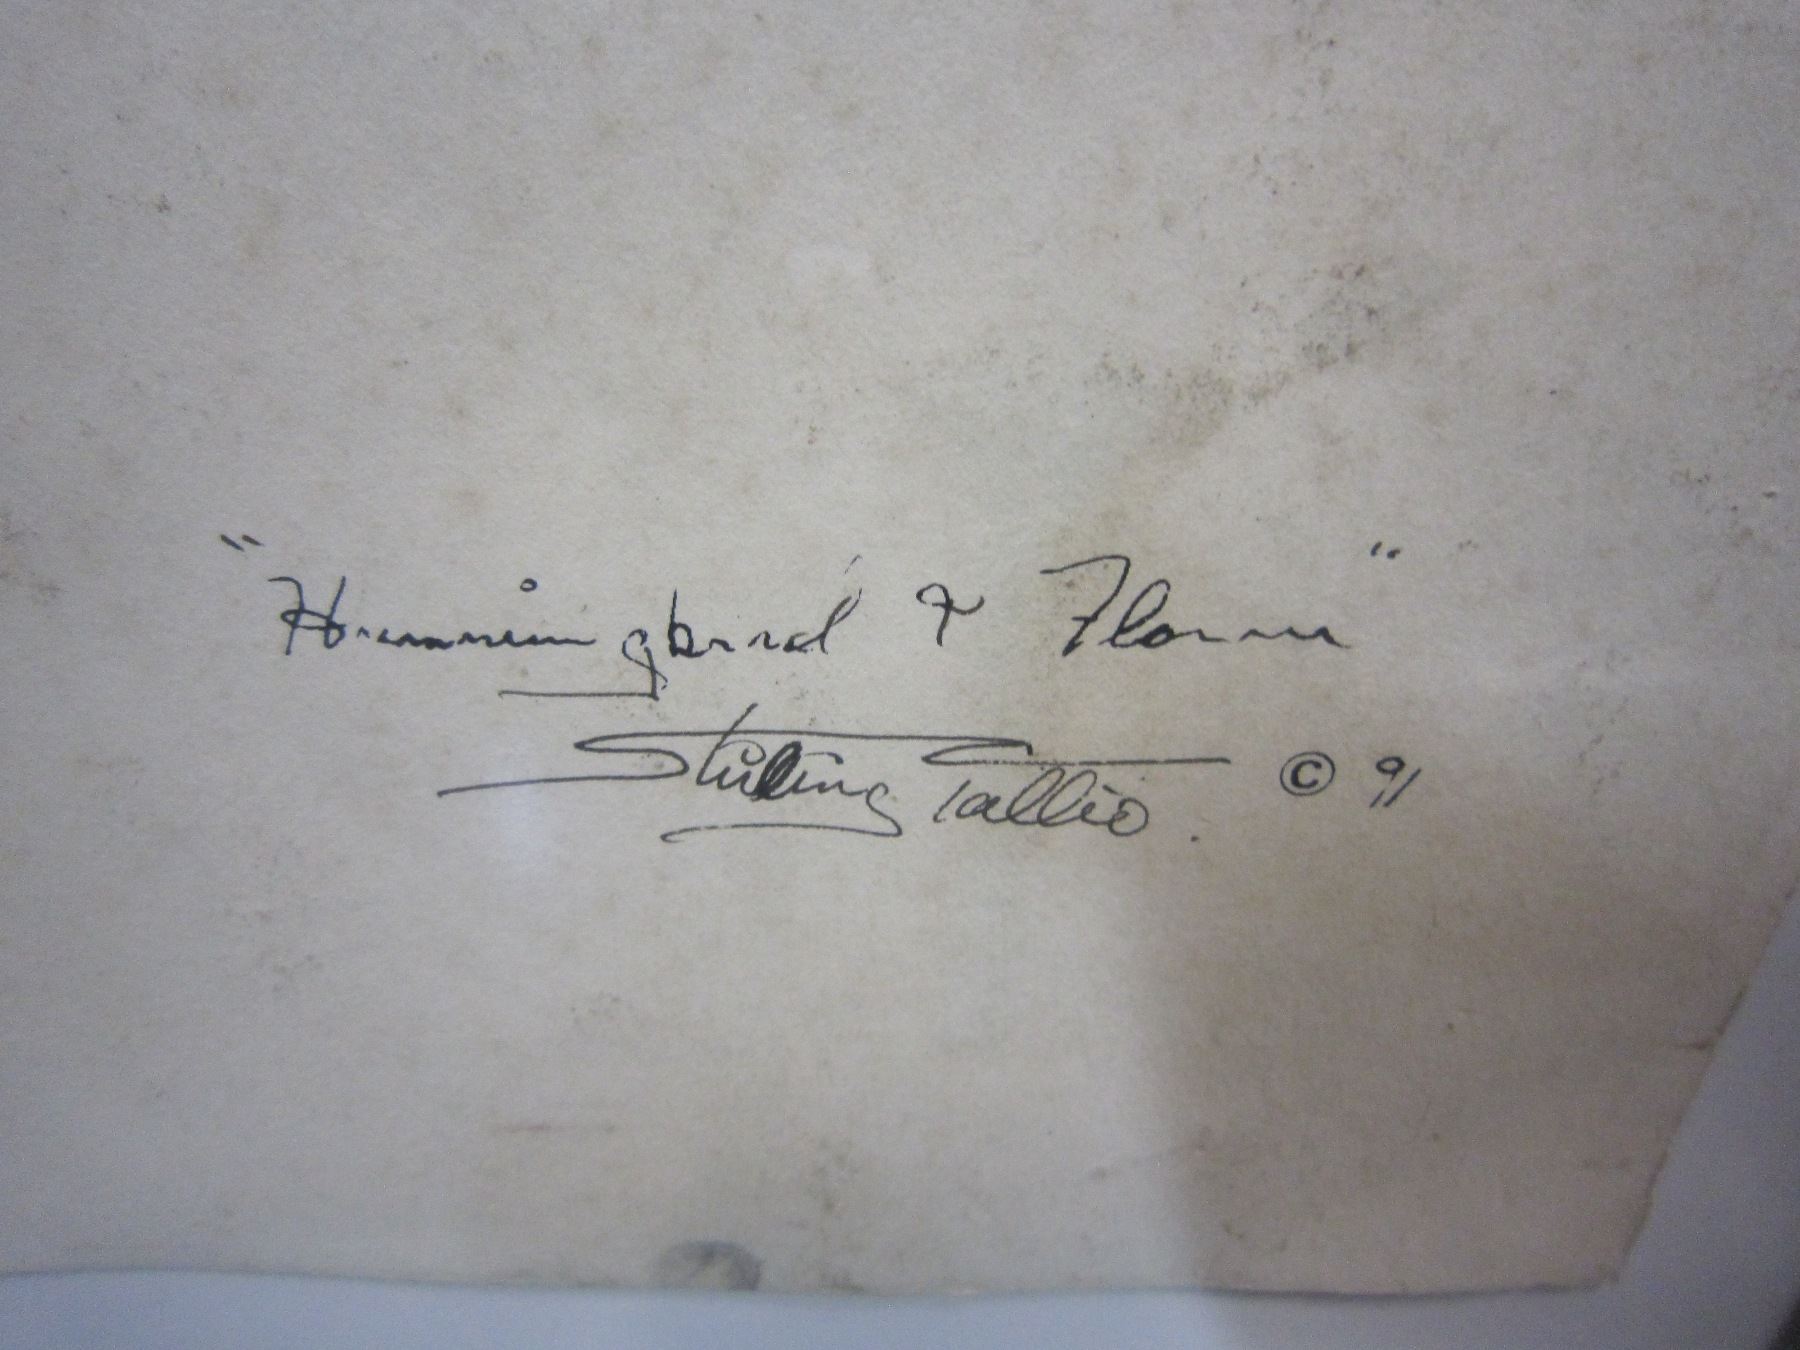 "Hummingbird & Flower"
Stirling Tallio. © 91